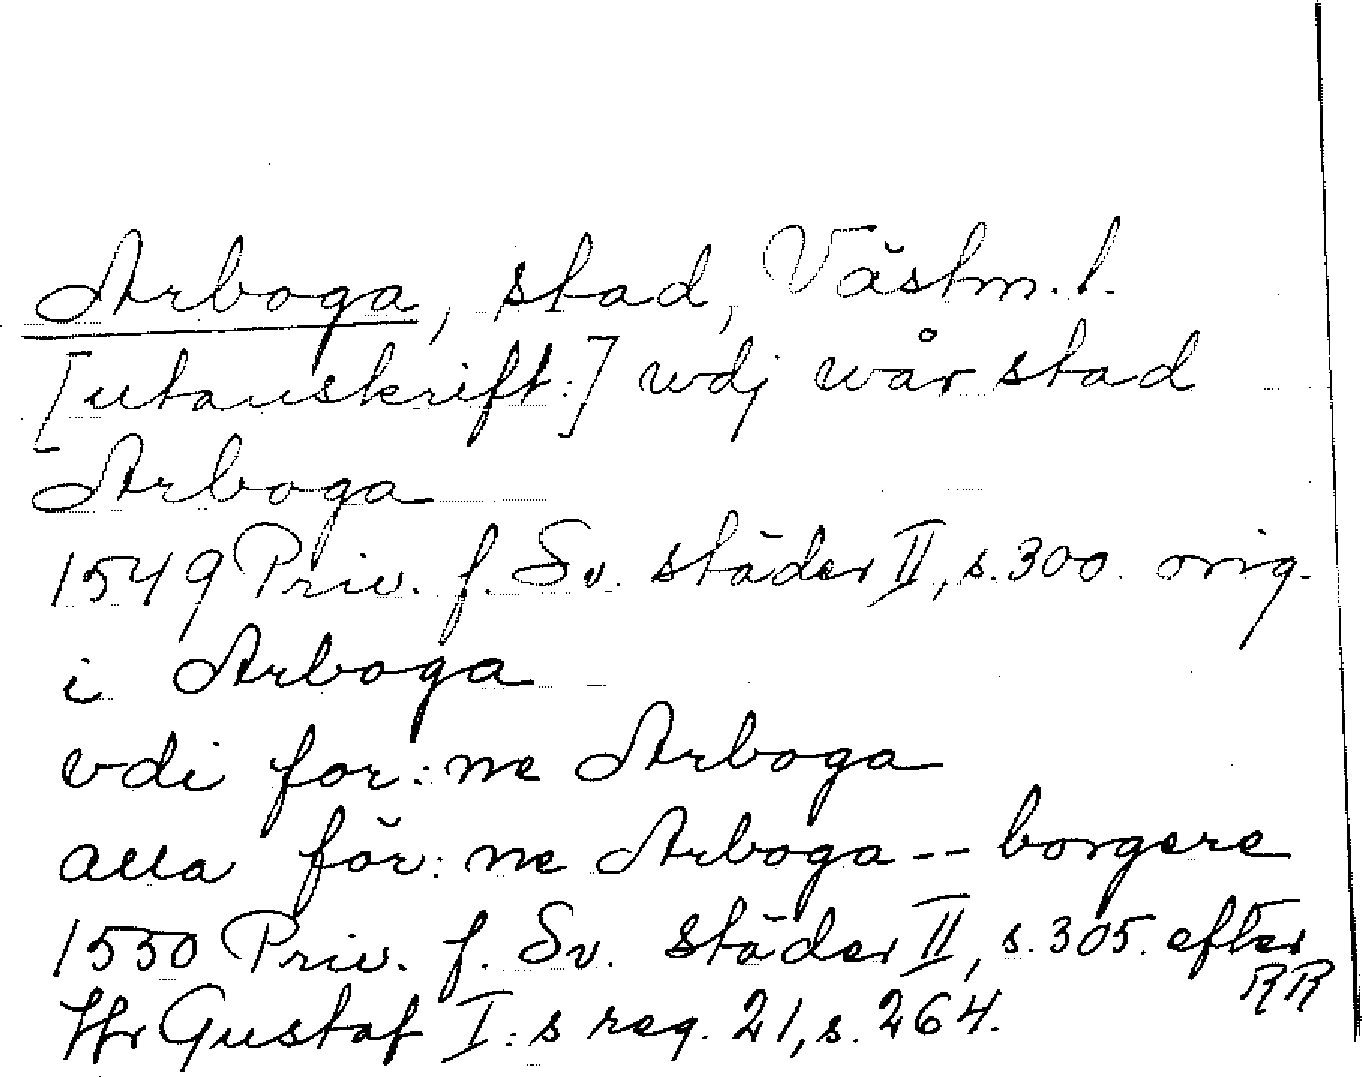 Arboga, stad, Västm. l.
[utanskrift:] wdj wår stad
Arboga
1549 Priv. f. Sv. städer II, s. 300. orig.
i Arboga
vdi for:ne Arboga
alla för:ne Arboga -- borgere
1550 Priv. f. Sv. städer II, s. 305. efter RR
Jfr Gustaf I:s reg. 21, s. 264.